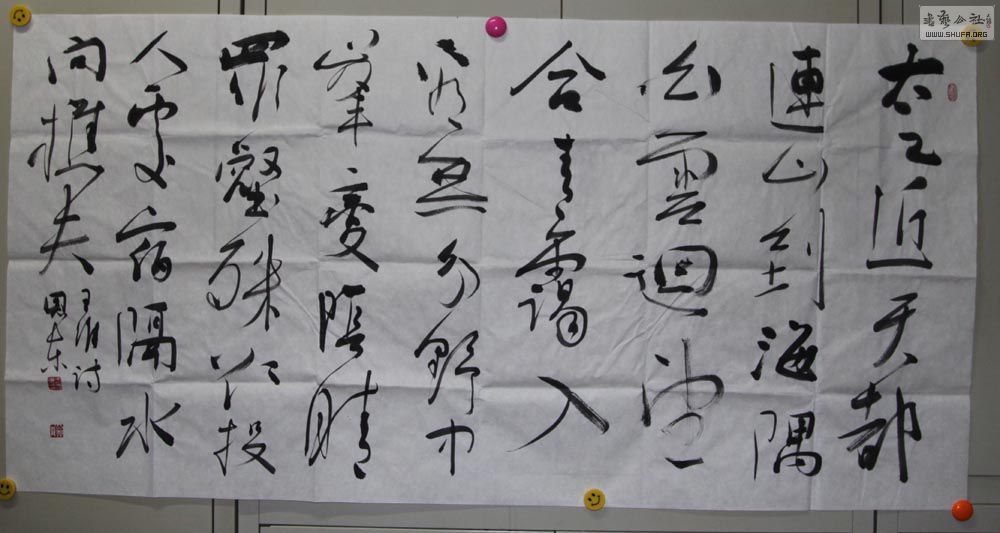 太乙近天都
連山到海隅
白雲迴望
合青靄入
看無分野中
峯變陰晴
眾壑殊欲投
人處宿隔水
问樵夫
王维诗
书艺公社
WWW.SHUFA.ORG